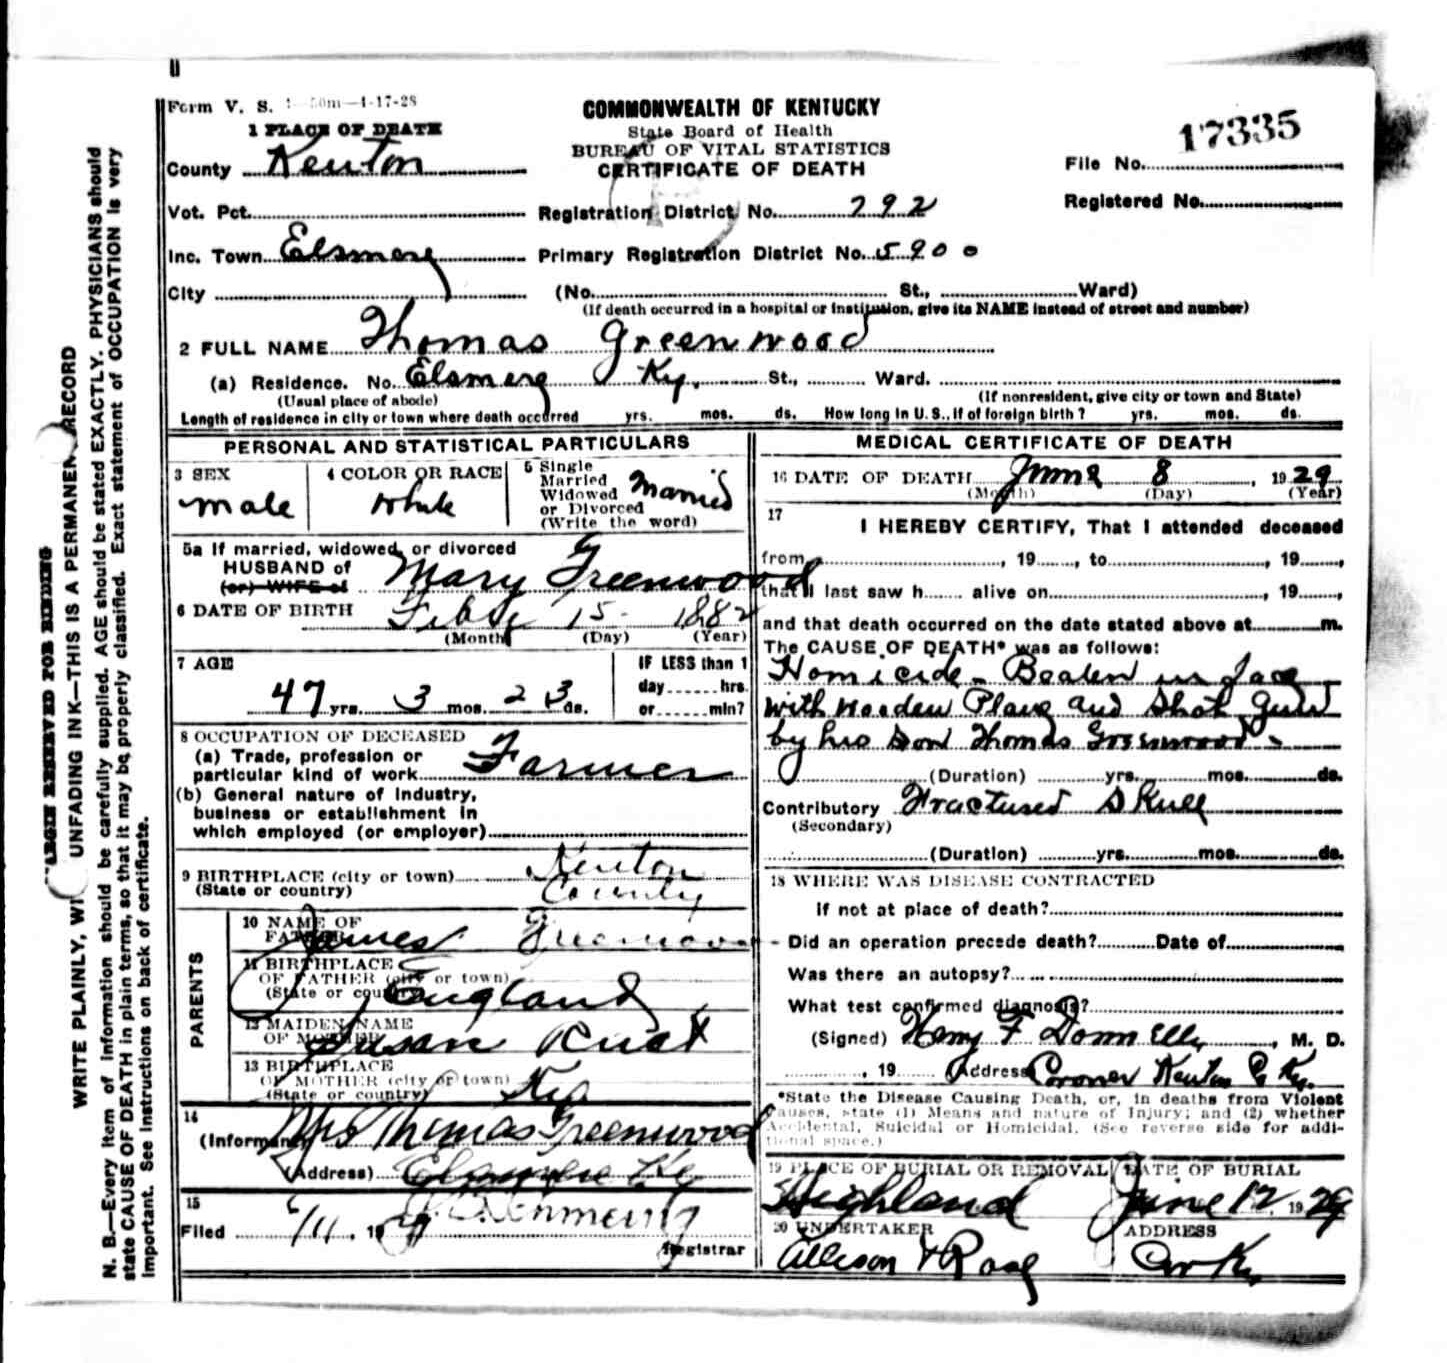 Form V. S. 1-50m-4-17-28
COMMONWEALTH OF KENTUCKY
State Board of Health
BUREAU OF VITAL STATISTICS
CERTIFICATE OF DEATH
File No. 17335
Registered No.
1 PLACE OF DEATH
County Kenton
Vot. Pct. Registration District No. 792
Inc. Town Elsmere Primary Registration District No. 5900
City (No. St., Ward)
(If death occurred in a hospital or institution, give its NAME instead of street and number)
2 FULL NAME Thomas Greenwood
(a) Residence. No. Elsmere Ky. St., Ward.
(Usual place of abode) (If nonresident, give city or town and State)
Length of residence in city or town where death occurred yrs. mos. ds. How long in U.S., if of foreign birth? yrs. mos. ds.
PERSONAL AND STATISTICAL PARTICULARS
3 SEX
male
4 COLOR OR RACE
White
5 Single
Married
Widowed
or Divorced
(Write the word)
Married
5a If married, widowed, or divorced
HUSBAND of
(or) WIFE of Mary Greenwood
6 DATE OF BIRTH Feby 15 1882
(Month) (Day) (Year)
7 AGE
47 yrs. 3 mos. 23 ds.
IF LESS than 1
day hrs.
or min?
8 OCCUPATION OF DECEASED
(a) Trade, profession or
particular kind of work Farmer
(b) General nature of industry,
business or establishment in
which employed (or employer)
9 BIRTHPLACE (city or town) Kenton
(State or country) County
PARENTS
10 NAME OF
FATHER James Greenwood
11 BIRTHPLACE
OF FATHER (city or town)
(State or country) England
12 MAIDEN NAME
OF MOTHER Susan Rust
13 BIRTHPLACE
OF MOTHER (city or town)
(State or country) Ky
14
(Informant) Mrs Thomas Greenwood
(Address) Elsmere Ky
15
Filed 6/11, 19
Registrar
MEDICAL CERTIFICATE OF DEATH
16 DATE OF DEATH June 8, 1929
(Month) (Day) (Year)
17
I HEREBY CERTIFY, That I attended deceased
from , 19 , to , 19 ,
that I last saw h alive on , 19 ,
and that death occurred on the date stated above at m.
The CAUSE OF DEATH* was as follows:
Homicide - Beaten in face
with wooden Plank and Shot Gun
by his Son Thomas Greenwood -
(Duration) yrs. mos. ds.
Contributory Fractured Skull
(Secondary)
(Duration) yrs. mos. ds.
18 WHERE WAS DISEASE CONTRACTED
If not at place of death?
Did an operation precede death? Date of
Was there an autopsy?
What test confirmed diagnosis?
(Signed) Henry F Donnelly, M. D.
, 19 (Address) Coroner Kenton Co Ky.
*State the Disease Causing Death, or, in deaths from Violent
Causes, state (1) Means and nature of Injury; and (2) whether
Accidental, Suicidal or Homicidal. (See reverse side for addi-
tional space.)
19 PLACE OF BURIAL OR REMOVAL DATE OF BURIAL
Highland June 12, 1929
20 UNDERTAKER ADDRESS
Allison & Rose Cov Ky.
MARGIN RESERVED FOR BINDING
WRITE PLAINLY, WITH UNFADING INK—THIS IS A PERMANENT RECORD
N. B.—Every item of information should be carefully supplied. AGE should be stated EXACTLY. PHYSICIANS should
state CAUSE OF DEATH in plain terms, so that it may be properly classified. Exact statement of OCCUPATION is very
important. See instructions on back of certificate.